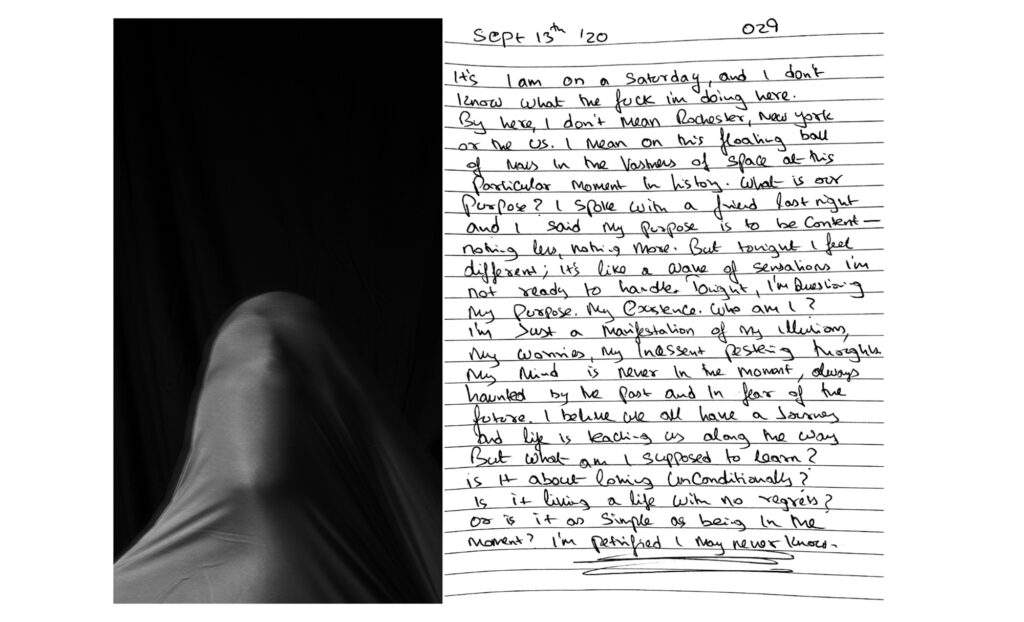 Sept 13th '20 029
It's 1am on a Saturday, and I don't
know what the fuck im doing here.
By here, I don't mean Rochester, New York
or the US. I mean on this floating ball
of mass in the vastness of space at this
particular moment in history. What is our
purpose? I spoke with a friend last night
and I said my purpose is to be content —
nothing less, nothing more. But tonight I feel
different; it's like a wave of sensations I'm
not ready to handle. Tonight, I'm questioning
my purpose. My existence. Who am I?
I'm just a manifestation of my illusions,
my worries, my inessent pestering thoughts.
My mind is never in the moment, always
haunted by the past and in fear of the
future. I believe we all have a journey
and life is teaching us along the way
But what am I supposed to learn?
is it about loving unconditionally?
Is it living a life with no regrets?
or is it as simple as being in the
moment? I'm petrified I may never know.